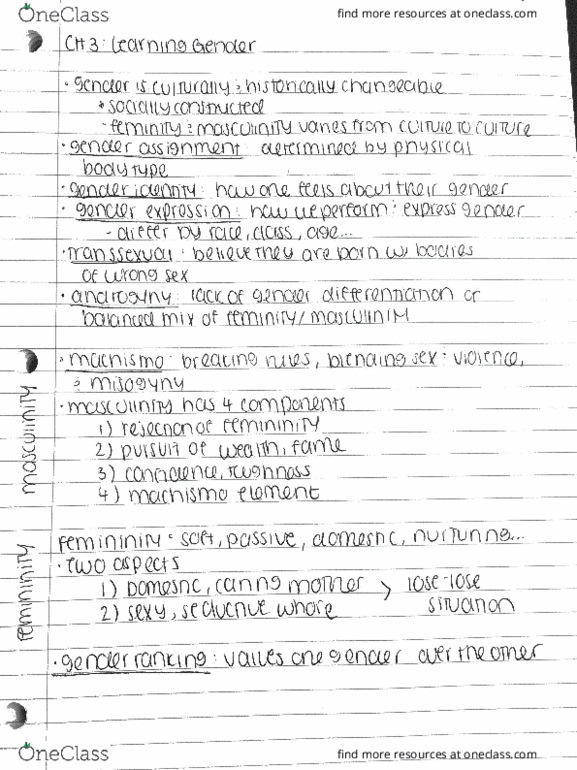 OneClass
find more resources at oneclass.com
CH 3: Learning Gender
· gender is culturally & historically changeable
* socially constructed
- feminity & masculinity varies from culture to culture
· gender assignment: determined by physical
body type
· gender identity: how one feels about their gender
· gender expression: how we perform & express gender
- differ by race, class, age...
· Transsexual: believe they are born w/ bodies
of wrong sex
· androgyny: lack of gender differentiation or
balanced mix of feminity/masculinity
masculinity
· machismo: breaking rules, blending sex & violence,
& misogyny
· masculinity has 4 components
1) rejection of femininity
2) pursuit of wealth, fame
3) confidence, toughness
4) machismo element
femininity
Femininity: soft, passive, domestic, nurturing...
· TWO aspects
1) Domestic, caring mother > lose-lose
2) sexy, seductive whore situation
· gender ranking: values one gender over the other
OneClass
find more resources at oneclass.com